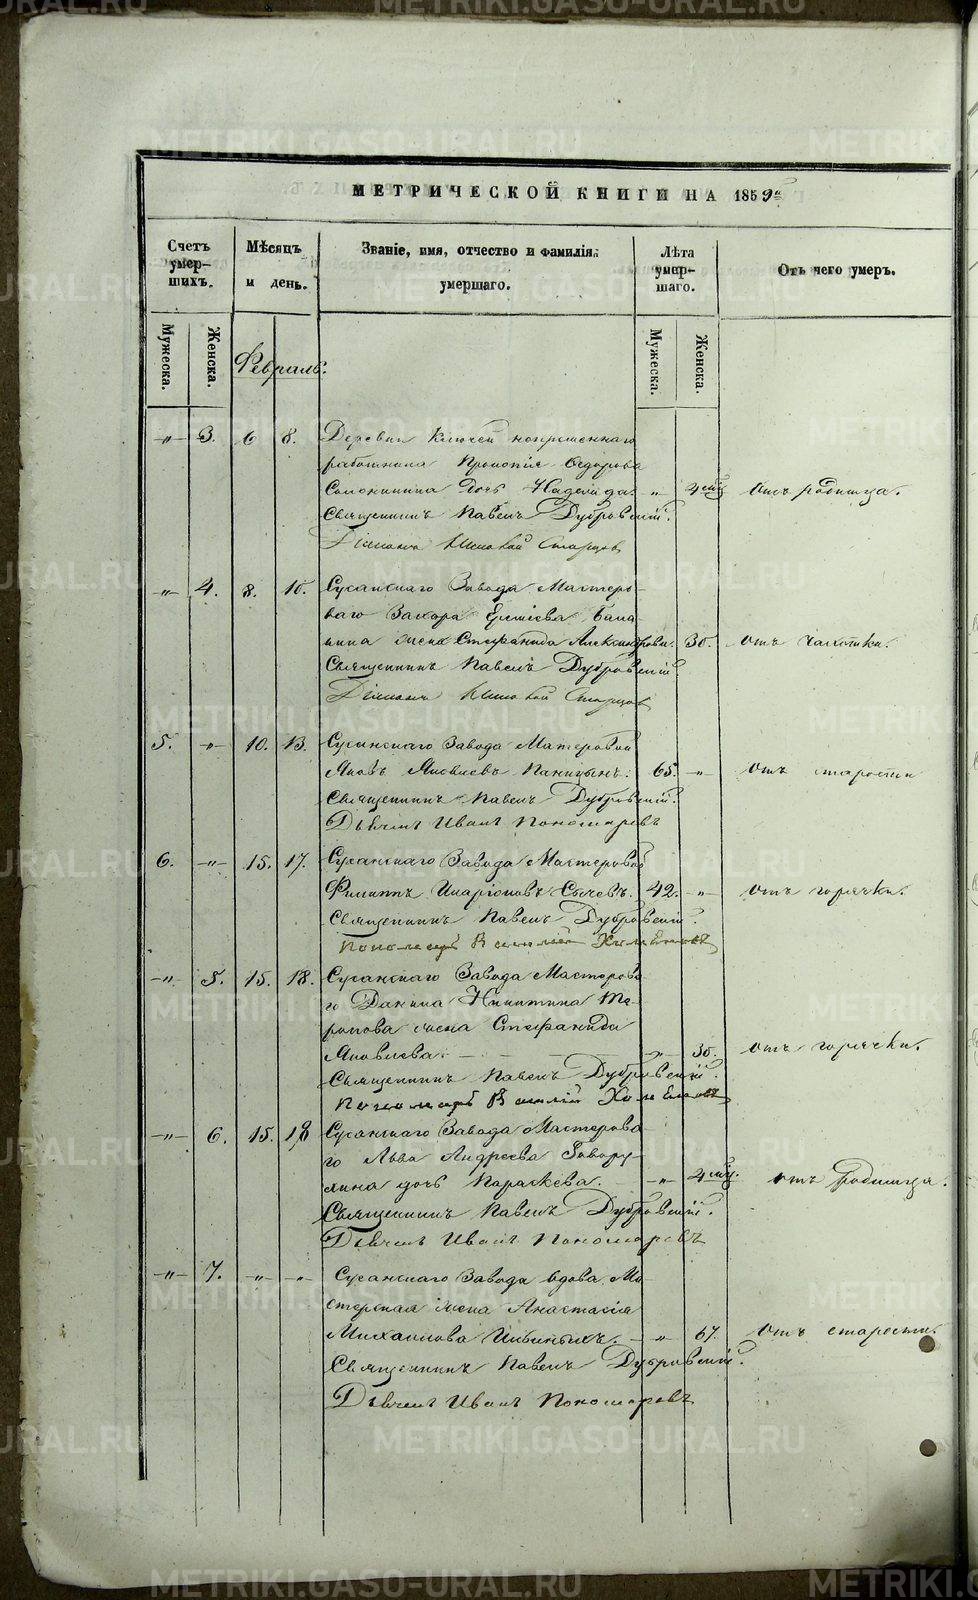 МЕТРИЧЕСКОЙ КНИГИ НА 1859й
Счетъ умершихъ.
Мѣсяцъ и день.
Званіе, имя, отчество и фамилія умершаго.
Лѣта умершаго.
Отъ чего умеръ.
Мужеска.
Женска.
Мужеска.
Женска.
Февраль.
-"- 3. 6 8. Деревни Ключей непремѣннаго
работника Прокопія Федорова
дочь Надежда. " 4 мѣс Отъ родимца.
Священникъ Павелъ Дубровскій.
Діаконъ Николай Старцовъ
-"- 4. 8. 10. Сусанскаго Завода Мастеро-
ваго Захара
жена Стефанида Александрова. 30. отъ чахотки.
Священникъ Павелъ Дубровскій.
Діаконъ Николай Старцовъ
5. -"- 10. 13. Сусанскаго Завода Мастеровой
Яковъ Яковлевъ 65. -"- отъ старости
Священникъ Павелъ Дубровскій.
Дьячекъ Иванъ Пономаревъ
6. -"- 15. 17. Сусанскаго Завода Мастеровой
Филиппъ Иларіоновъ Сычевъ. 42. -"- отъ горячки.
Священникъ Павелъ Дубровскій.
Пономарь Василій
-"- 5. 15. 18. Сусанскаго Завода Мастерова-
го Данила Никитина
жена Стефанида
Яковлева. -"- 30. отъ горячки.
Священникъ Павелъ Дубровскій.
Пономарь Василій
-"- 6. 15. 18 Сусанскаго Завода Мастерова-
го Льва Андреева Говору-
хина дочь Параскева. -"- 4 мѣс. отъ родимца.
Священникъ Павелъ Дубровскій.
Дьячекъ Иванъ Пономаревъ
-"- 7. -"- -"- Сусанскаго Завода вдова Ма-
стерская жена Анастасія
Михайлова Ильиныхъ. -"- 67. отъ старости.
Священникъ Павелъ Дубровскій.
Дьячекъ Иванъ Пономаревъ
METRIKI.GASO-URAL.RU